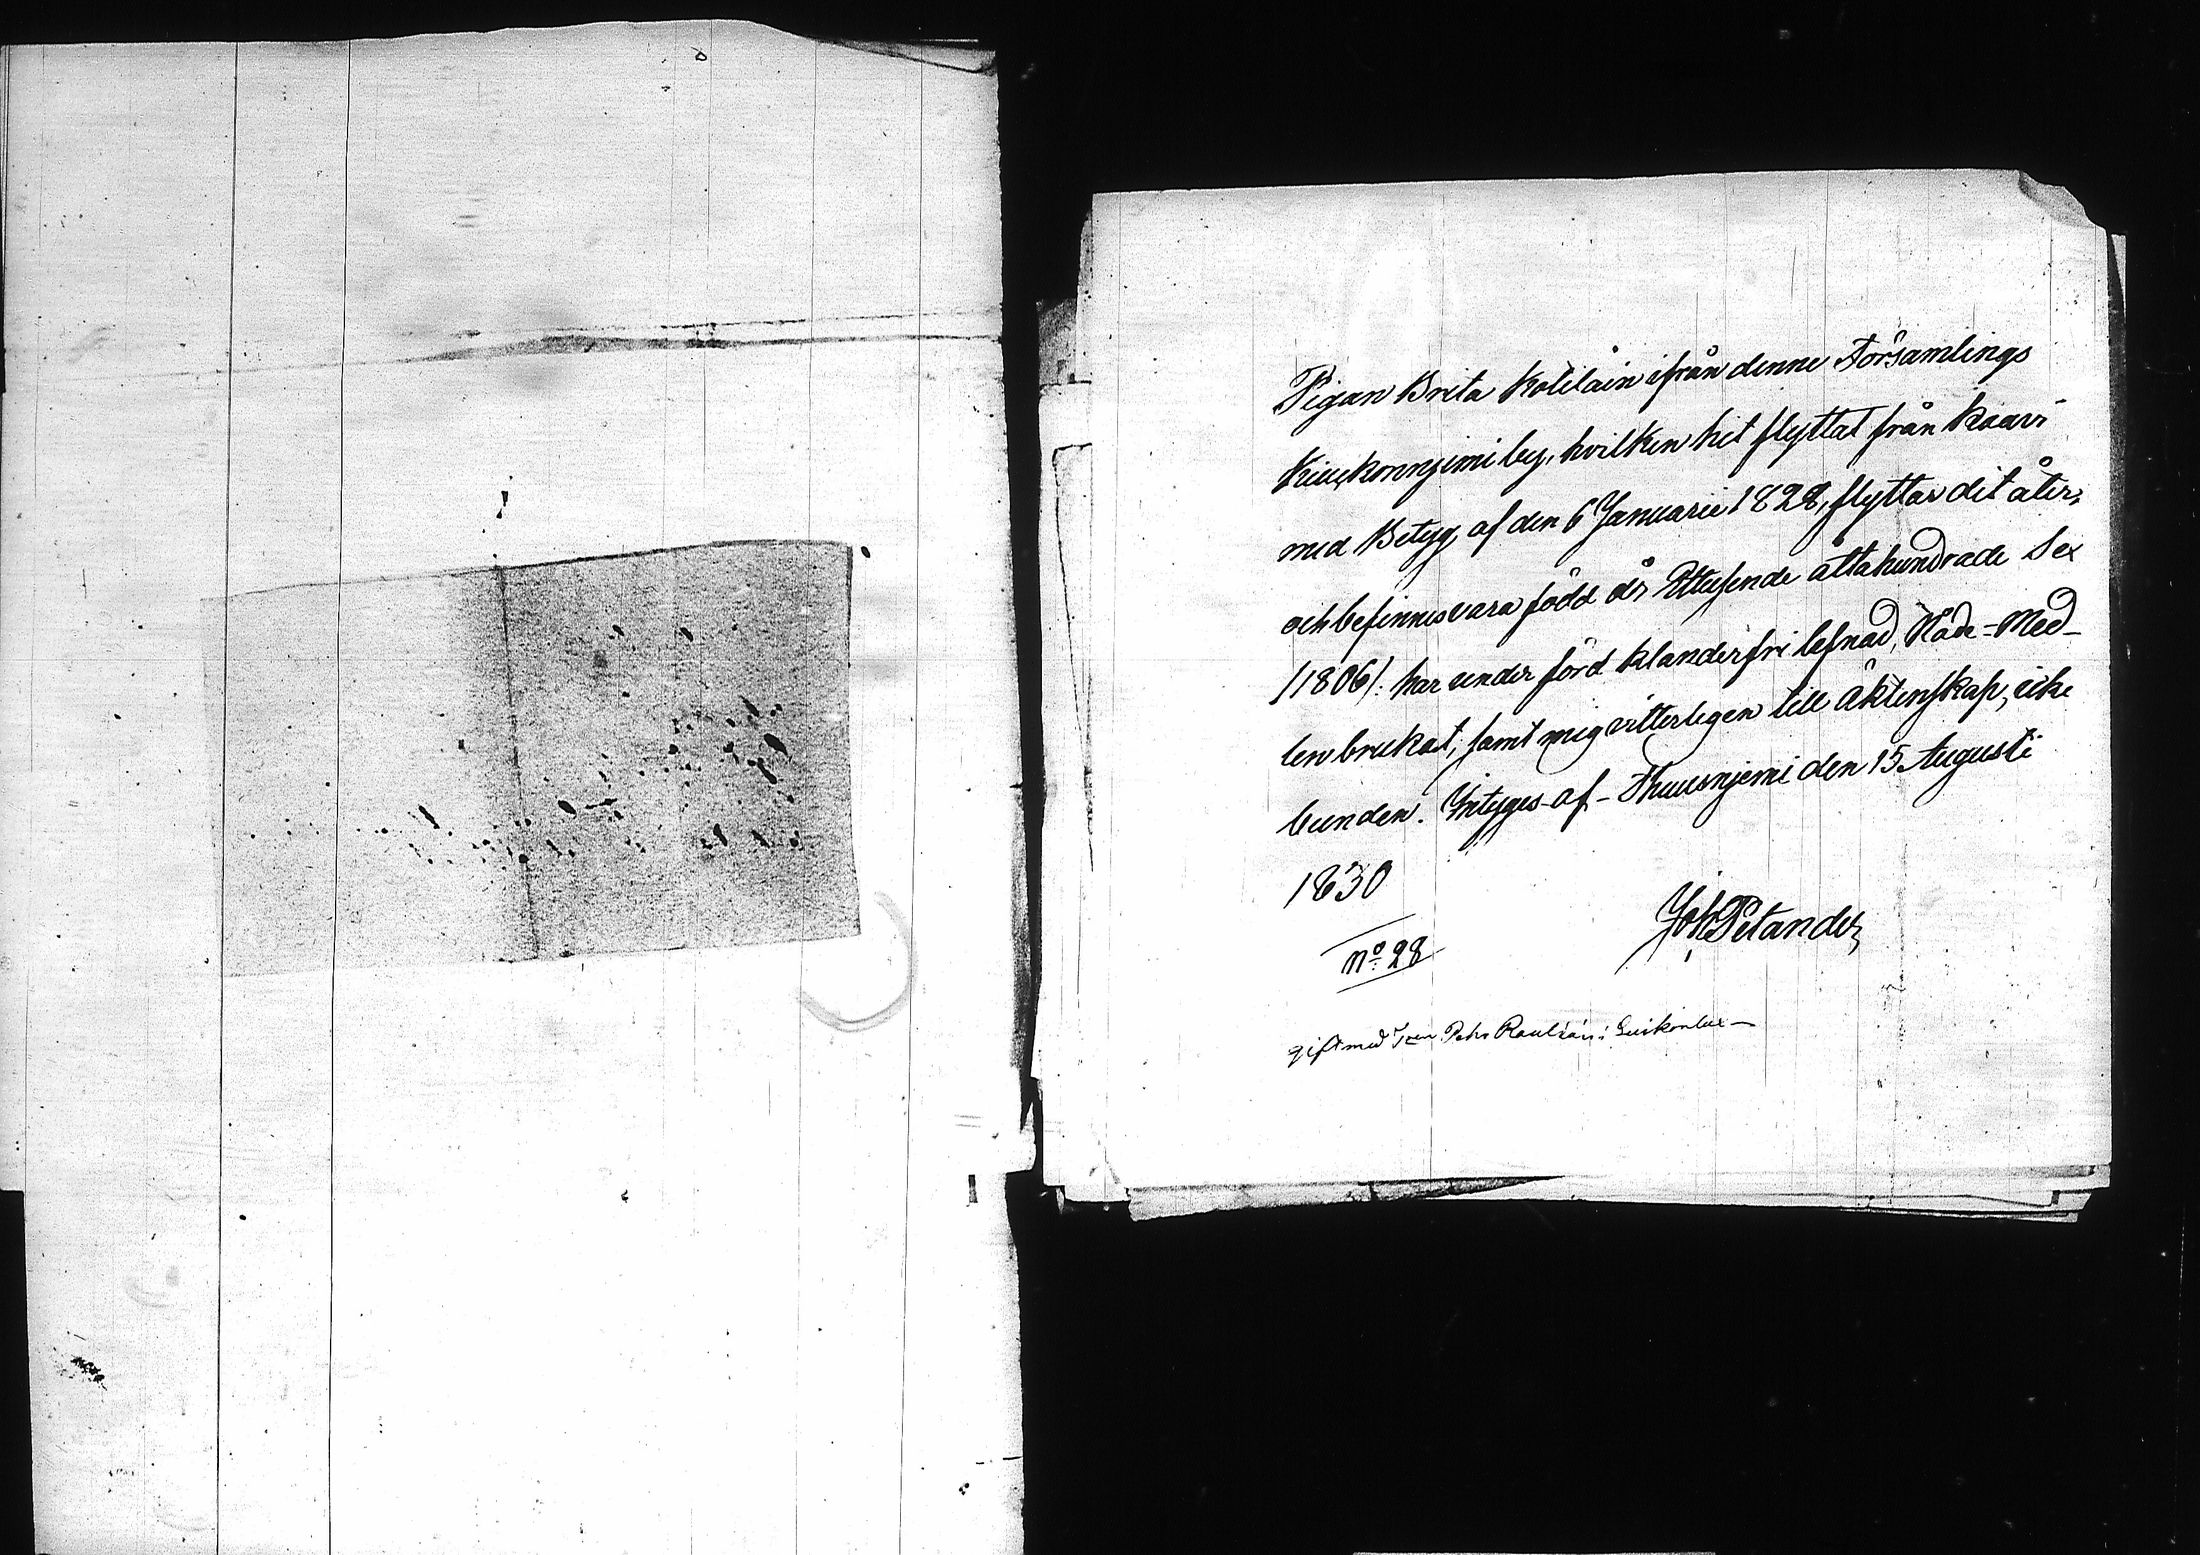 Pigan Brita Kotilain ifrån denne Församlings
by, hvilken hit flyttat från Kaavi
med Betyg af den 6 Januarii 1828, flyttar dit åter,
och befinnes vara född år Ettusende åttahundrade Sex
/1806/: har under förd klanderfri lefnad, Nåde-Med-
len brukat, samt mig vitterligen till Äktenskap, icke
bunden. Intyges af - Thuusnjemi den 15 Augusti
1830
Joh Petander
No 28
gift med Petr i